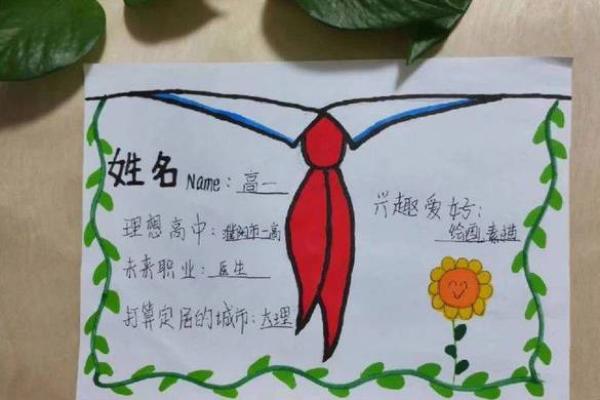 姓名 Name: 高一
兴趣爱好:
绘画,素描
理想高中: 濮阳市一高
未来职业: 医生
打算定居的城市: 大理